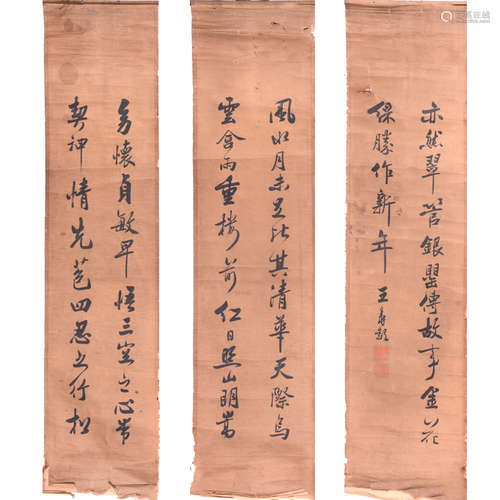 幼懷貞敏早悟三空之心常
契神情先苞四忍之行松
風水月未足比其清華天際烏
雲含雨重樓前紅日照山明嵩
亦然翠管銀罌傳故事金花
綵勝作新年 王壽彭